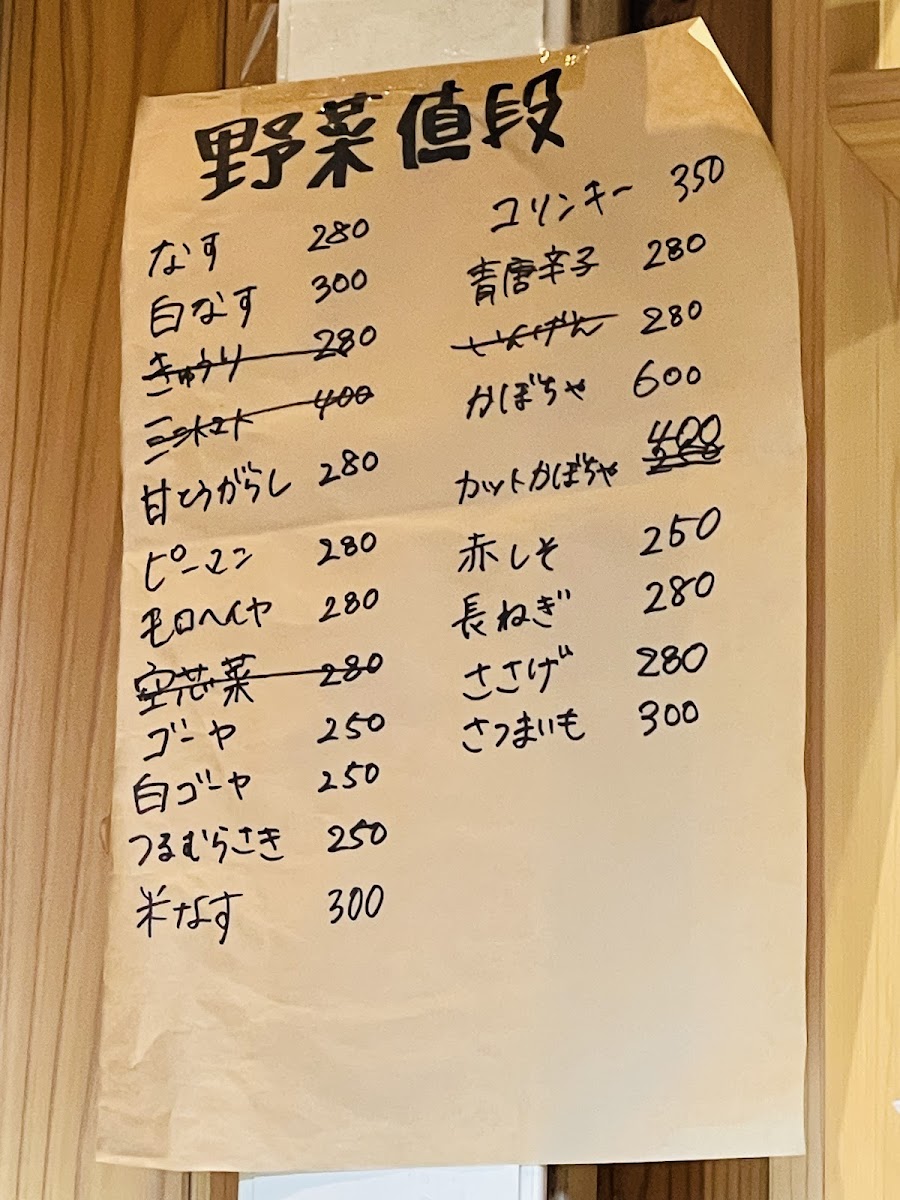 野菜値段
なす 280
白なす 300
きゅうり 280
ミニトマト 400
甘とうがらし 280
ピーマン 280
モロヘイヤ 280
空芯菜 280
ゴーヤ 250
白ゴーヤ 250
つるむらさき 250
米なす 300
コリンキー 350
青唐辛子 280
いんげん 280
かぼちゃ 600
カットかぼちゃ 400
赤しそ 250
長ねぎ 280
ささげ 280
さつまいも 300